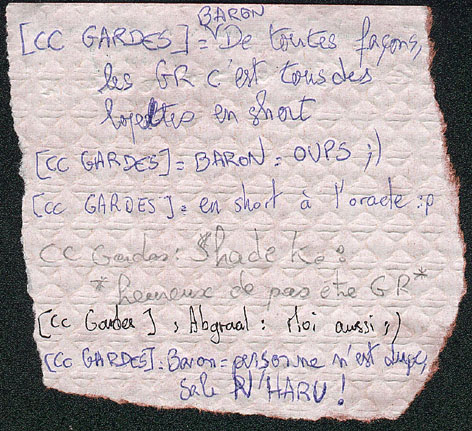 BARON
[CC GARDES] = De toutes façons,
les GR c'est tous des
lopettes en short
[CC GARDES] = BARON = OUPS ;)
[CC GARDES] = en short à l'oracle :p
CC Gardes : Shade Ko :
*heureux de pas être GR*
[CC Gardes] : Abgraal : Moi aussi ;)
[CC GARDES] = Baron = personne n'est dupe,
sale N'HARU !